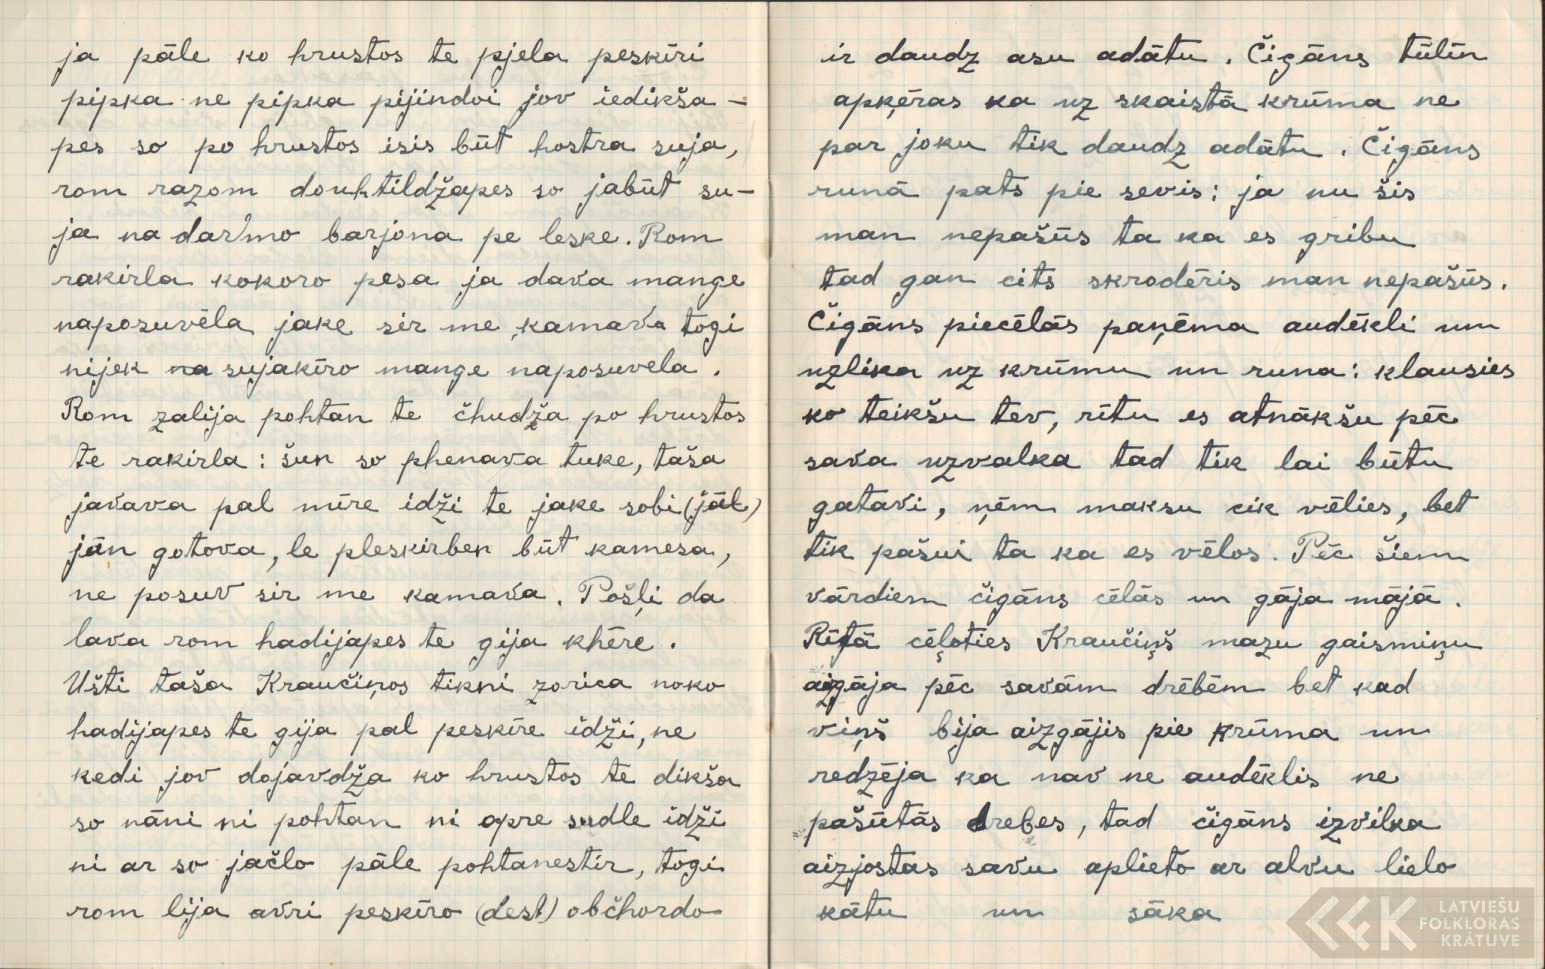 ja pāle ko hrustos te pjela peskīri
pipka ne pipka pijindoi jov iedikša-
pes so po hrustos isis būt hostra suja,
rom razom douhtildžapes so jabūt su-
ja na dar'mo barjona pe leske. Rom
rakirla kokoro pesa ja dava mange
naposuvēla jake sir me kamava togi
nijek na sujakīro mange naposuvela.
Rom zalija pohtan te čhudža po hrustos
te rakirla: šun so phenava tuke, taša
javava pal mīre idži te jake sobi (jāl)
jān gotova, le pleskirben būt kamesa,
ne posuv sir me kamava. Pošļi da
lava rom hadijapes te gija khēre.
Ušti taša Kraučiņos tikni zorica noko
hadijapes te gija pal peskīre idži, ne
kedi jov dojavdža ko hrustos te dikša
so nāni ni pohtan ni opre sudle idži
ni ar so jačlo pāle pohtanestir, togi
rom lija avri peskīro (dest) občhordo
ir daudz asu adātu. Čigāns tūlīn
apķēras ka uz skaistā krūma ne
par joku tik daudz adātu. Čigāns
runā pats pie sevis: ja nu šis
man nepašūs ta ka es gribu
tad gan cits skrodēris man nepašūs.
Čigāns piecēlās paņēma audēkli un
uzlika uz krūmu un runa: klausies
ko teikšu tev, rītu es atnākšu pēc
sava uzvalka tad tik lai būtu
gatavi, ņēm maksu cik vēlies, bet
tik pašui ta ka es vēlos. Pēc šiem
vārdiem čigāns cēlās un gāja mājā.
Rītā cēļoties Kraučiņš mazu gaismiņu
aizgāja pēc savām drēbēm bet kad
viņš bija aizgājis pie krūma un
redzēja ka nav ne audēklis ne
pašūtās drebes, tad čigāns izvilka
aizjostas savu aplieto ar alvu lielo
kātu un sāka
LATVIEŠU
FOLKLORAS
KRĀTUVE